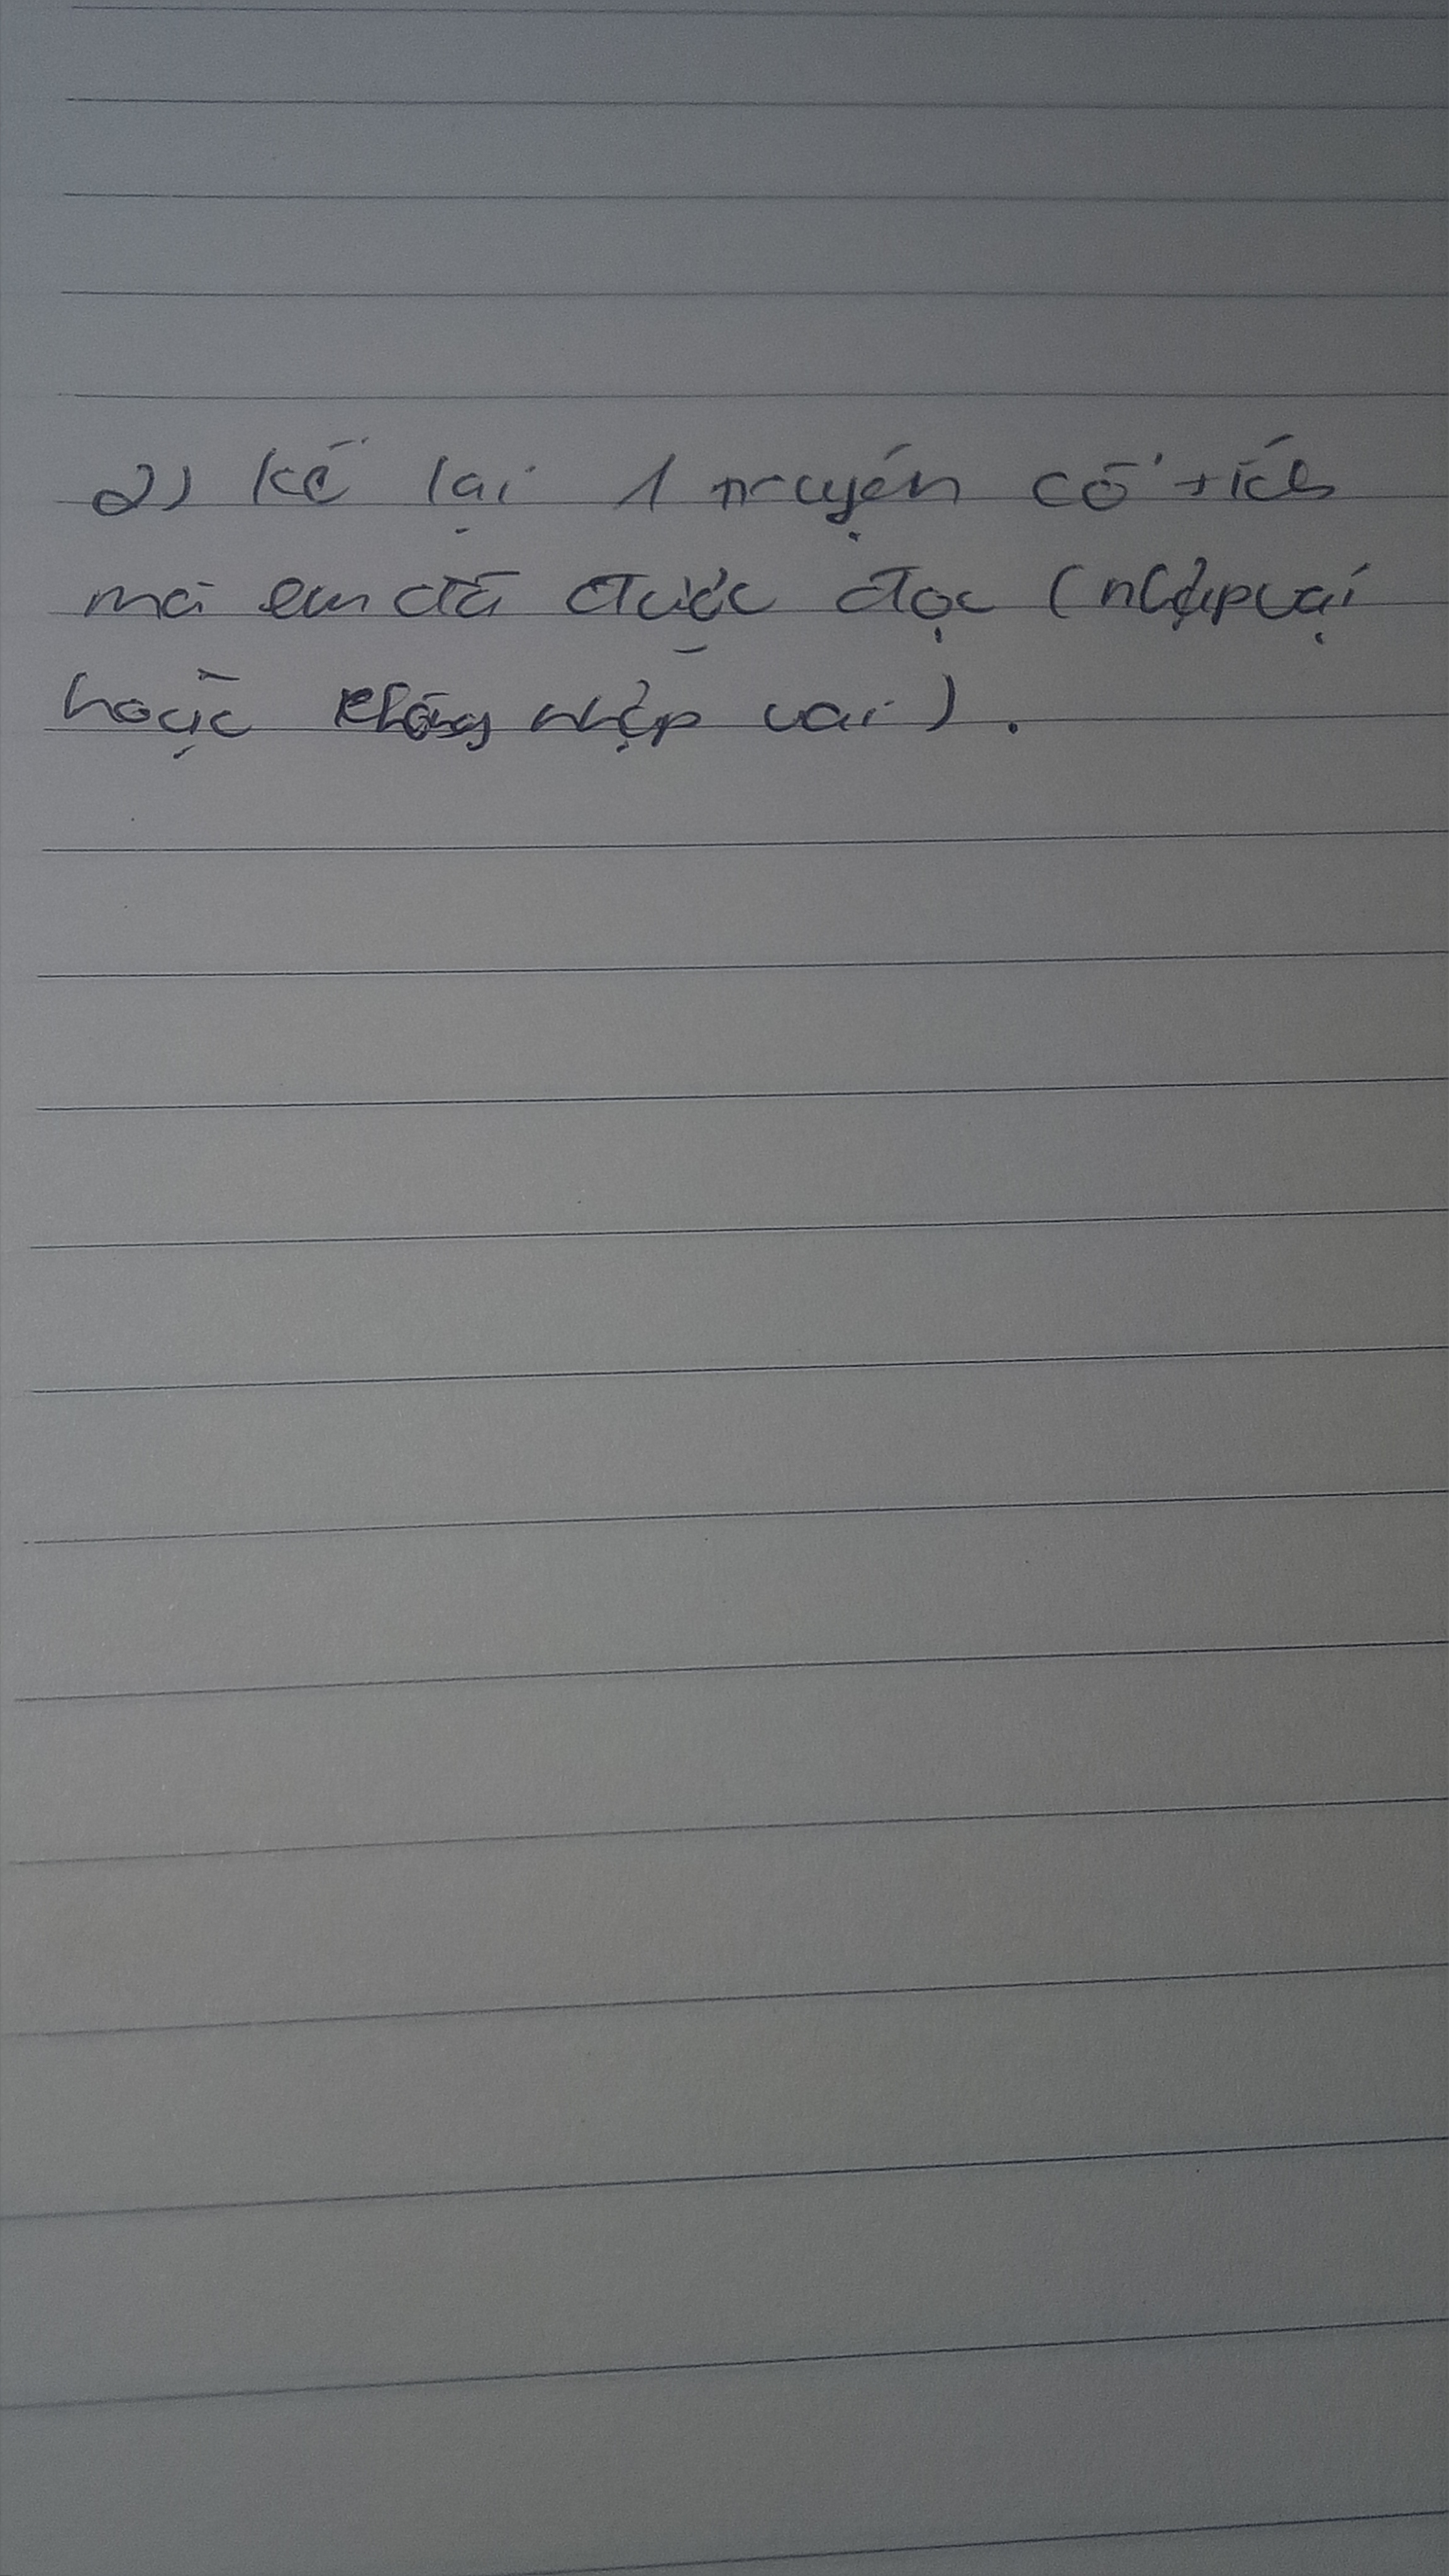 2) Kể lại 1 truyện cổ tích
mà em đã được đọc (nhập vai
hoặc không nhập vai).